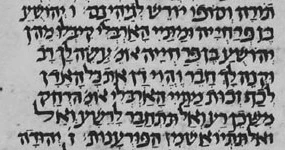 תורה וסופו יורש לגיהינם : ו יהושע
בן פרחייה ומתיי הארבלי קיבלו מהן
יהושע בן פרחייה אומ' עשה לך רב
וקנה לך חבר והוי דן את כל האדם
לכף זכות מתיי הארבלי אומ' הרחק
משכן רע ואל תתחבר לרשע ואל
ואל תתייאש מן הפורענות : ז יהודה